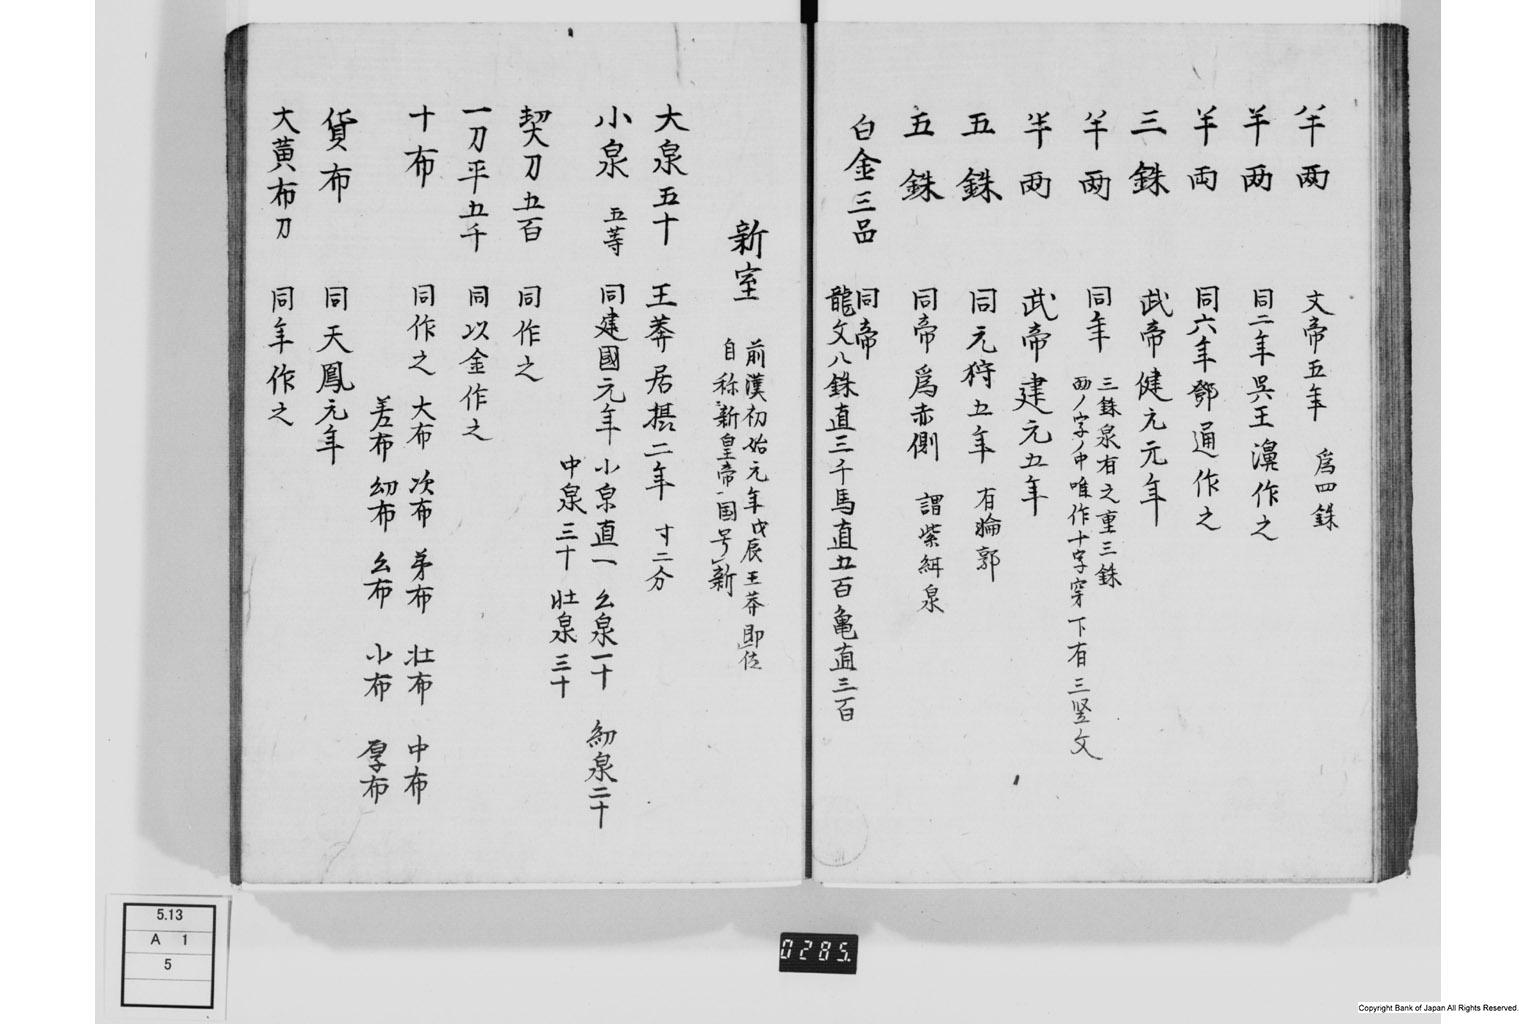 半両 文帝五年 為四銖
半两 同二年呉王濞作之
半両 同六年鄧通作之
三銖 武帝健元元年
半两 同年 三銖泉有之重三銖
两ノ字ノ中唯作十字穿下有三竖文
半两 武帝建元五年
五銖 同元狩五年 有輪郭
五銖 同帝為赤側 謂紫紺泉
白金三品 同帝
龍文八銖直三千馬直五百亀直三百
新室 前漢初始元年戊辰王莽即位
自称新皇帝国号新
大泉五十 王莽居摂二年 寸二分
小泉 五等 同建國元年 小泉直一 幺泉一十 幼泉二十
中泉三十 壮泉三十
契刀五百 同作之
一刀平五千 同以金作之
十布 同作之 大布 次布 弟布 壮布 中布
差布 幼布 幺布 小布 厚布
貨布 同天鳳元年
大黄布刀 同年作之
5.13
A 1
5
0285.
Copyright Bank of Japan All Rights Reserved.